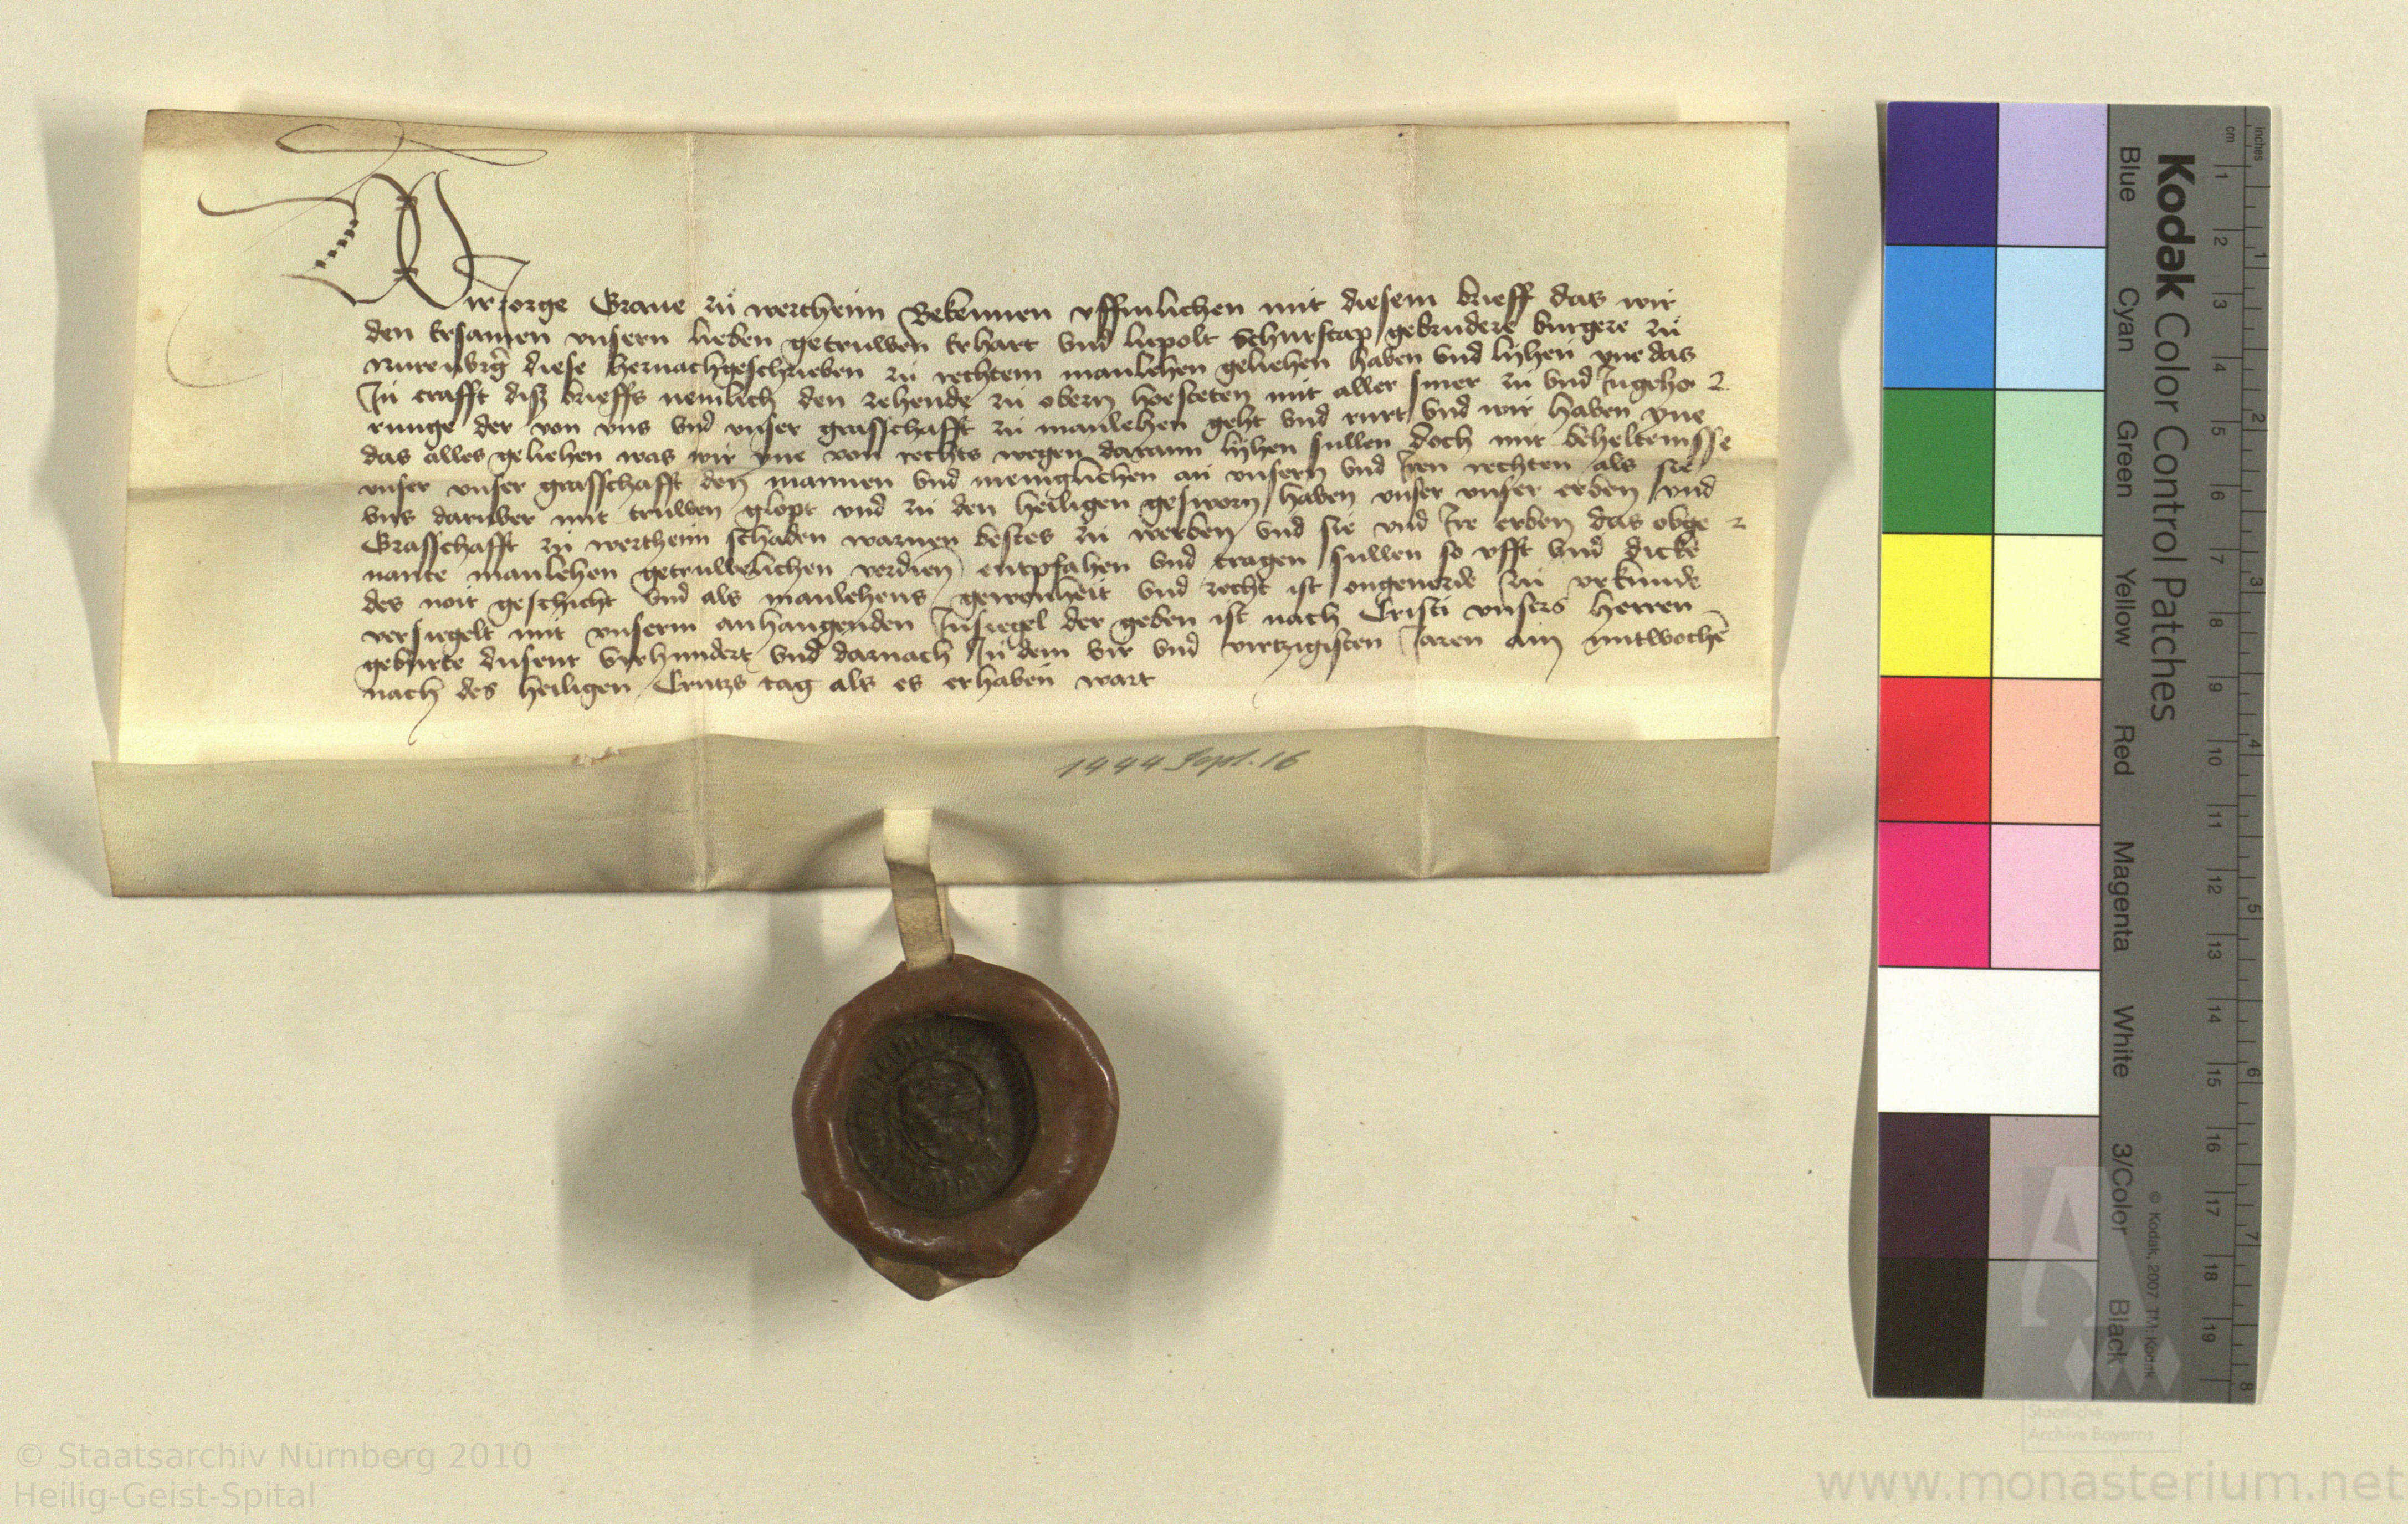 Wir Jorge Graue zu wertheim Bekennen uffinlichen mit diesem brieff das wir
den Ersamen unsern lieben getruwen Erhart vnd lupolt Schurstap gebrudere burgere zu
Nurenbrg diese hernachgeschrieben zu rechtem manlehen geliehen haben vnd lyhen yne das
In crafft diß brieffs nemlich den zehende zu obern hoesteten mit aller siner zu vnd Ingeho
runge der von vns vnd vnser graffschafft zu manlehen geht vnd rurt vnd wir haben yne
das alles geliehen was wir yne von rechts wegen darann lyhen sullen doch mit beheltenisse
vnser vnser graffschafft den mannen vnd meniglichen an vnsern vnd Iren rechten als sie
vns daruber mit truwen glopt vnd zu den heiligen gesworn haben vnser vnser erben vnd
Graffschafft zu wertheim schaden warnen bestes zu werben vnd sie vnd Ire erben das obge
nante manlehen getruwelichen verdien entpfahen vnd tragen sullen so vfft vnd dicke
des noit geschicht vnd als manlehens gewonheit vnd recht ist ongeuerde Zu vrkunde
versiegelt mit vnserm anhangenden Insiegel der geben ist nach Cristi vnsers herren
geburte dusent virhundert vnd darnach In dem vir vnd virtzigisten Jaren am mitwochē
nach des heiligen Crutzs tag als es erhaben wart
1444 Sept. 16
Kodak Color Control Patches
Blue Cyan Green Yellow Red Magenta White 3/Color Black
© Kodak, 2007 TM: Kodak
inches 1 2 3 4 5 6 7 8
cm 1 2 3 4 5 6 7 8 9 10 11 12 13 14 15 16 17 18 19
Staatliche
Archive Bayerns
© Staatsarchiv Nürnberg 2010
Heilig-Geist-Spital
www.monasterium.net